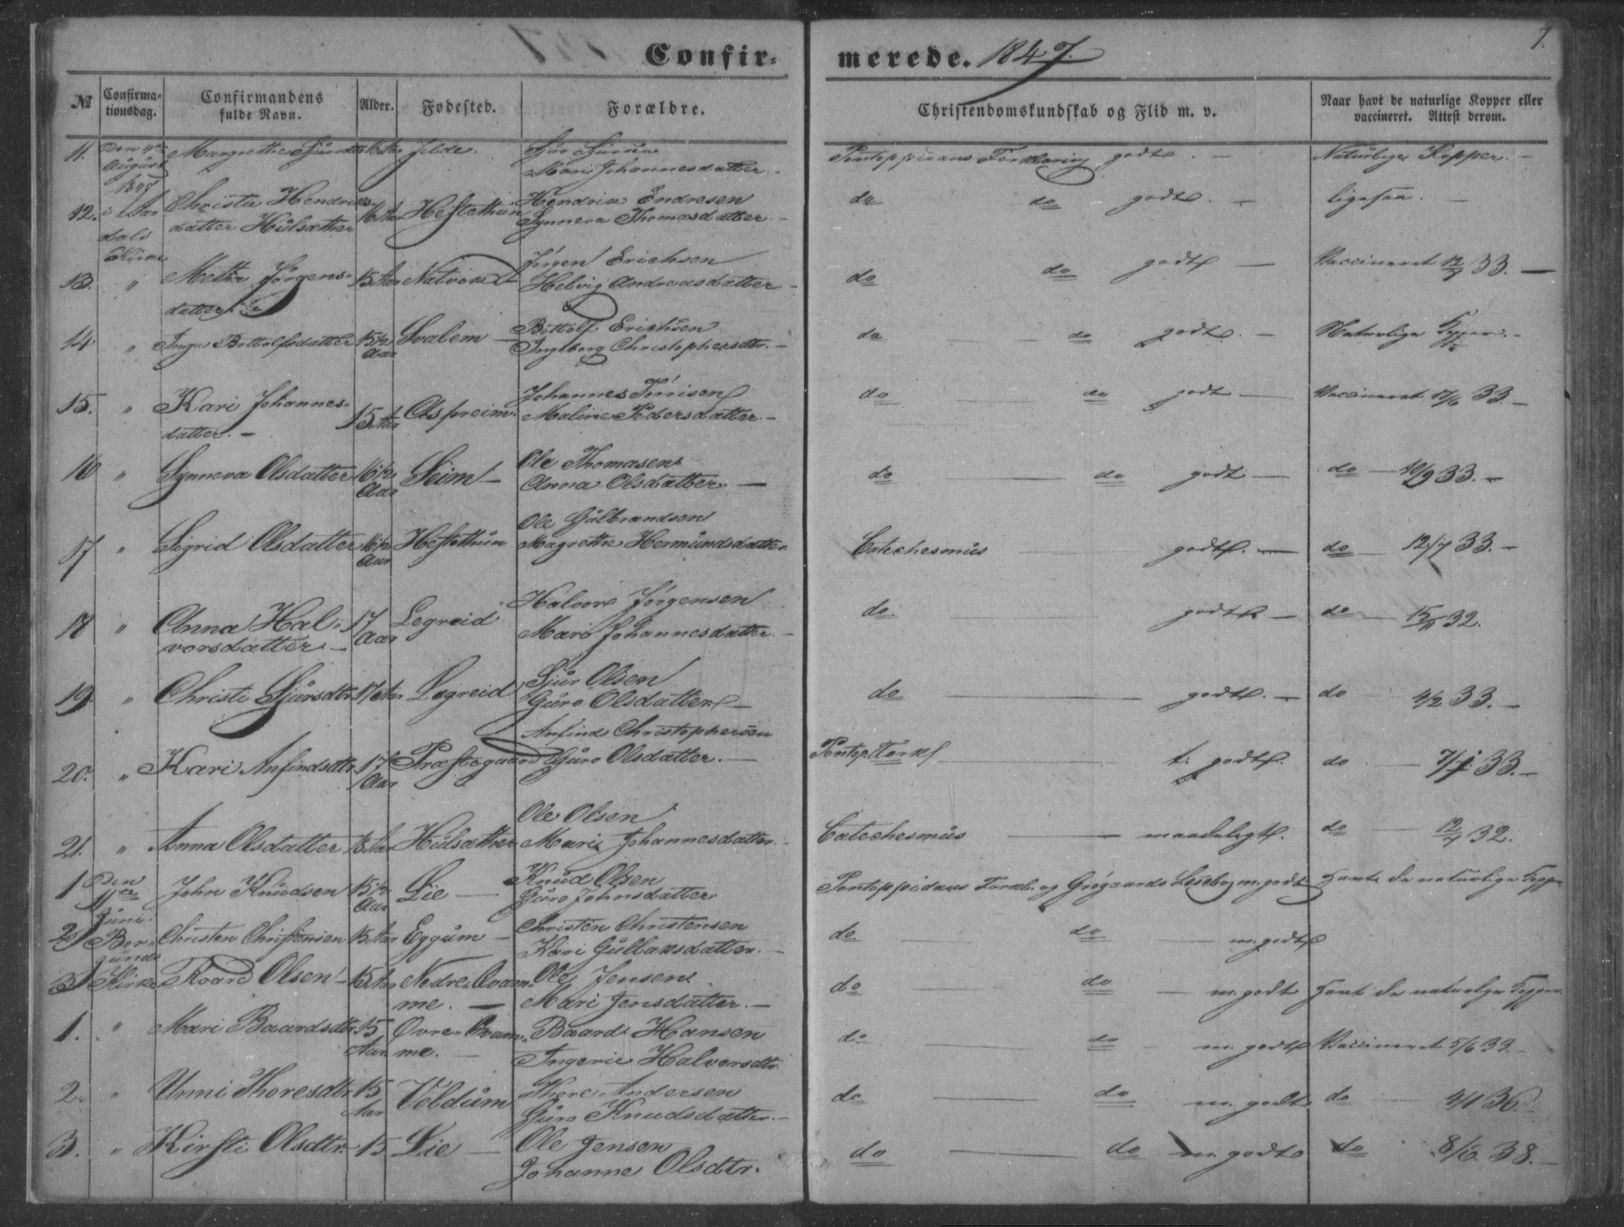 Confirmerede. 1847. 7.
№ Confirmationsdag. Confirmandens fulde Navn. Alder. Fødested. Forældre. Christendomskundskab og Flid m. v. Naar havt de naturlige Kopper eller vaccineret. Attest derom.
11. Den August 1847 Margrethe Johannesdatter Pontoppidans Forklaring godt. — Naturlige Kopper. —
12. i Christi Hendriksdatter Hulsæther 16 Aar Hestethun Hendrik Endresen
Synneva Thomasdatter — do do godt. — ligesaa. —
13. " Metta Jørgensdatter 15 Aar Jøren Erichsen
Helvig Andreasdatter — do do godt — Vaccineret 33. —
14 " Inga Bottolfsdatter 15½ Aar Svalem — Bottolf Erichsen
Ingeborg Christophersdtr. — do do godt. — Naturlige Kopper. —
15. " Kari Johannesdatter. — 15 Aar Johannes Tørrisen
Malene Pedersdatter — do do godt — Vaccineret 33. —
16 " Synneva Olsdatter 16½ Aar Seim — Ole Thomasen
Anna Olsdatter. — do do godt — do — 33. —
17 " Sigrid Olsdatter 16½ Aar Hestethun Ole Gulbrandsen
Magrethe Hermundsdatter Catechesmus godt. — do — 12/7 33. —
18 " Anna Halvorsdatter. — 17 Aar Legreid Halvor Jørgensen
Mari Johannesdatter — do. godt — do — 32.
19 " Christi Sjursdtr. 17 Aar Legreid Sjur Olsen
Guro Olsdatter — do godt. — do 4/2 33. —
20. " Kari Anfindsdtr. 17 Aar Præstegaard Anfind Christophersen
Guro Olsdatter. — Pontop. Forkl. t. godt. do — 33. —
21. " Anna Olsdatter 18 Aar Hulsæther Ole Olsen
Mari Johannesdatter Catechesmus — maadeligt. do 32.
1 Den 11er Juni Borgunds Kirke John Knudsen 15½ Aar Lie — Knud Olsen
Guro Johnsdatter Pontoppidans Forkl. og Grøgaards Læsebog m. godt Havt de naturlige Kopper
2 Christen Christensen 15 Aar Eggum — Christen Christensen
Kari Gulbansdatter. — do do — m. godt
3 Olsen 15 Aar Nedre Qvamme. — Ole Jensen
Mari Jensdatter. — do do — m. godt Havt de naturlige Kopper.
1. " Mari Baardsdtr. 15 Aar Øvre Qvamme. — Baard Hansen
Ingerie Halvorsdtr. do do — m. godt Vaccineret 5/6 33. —
2. " Unni Thoresdtr. 15 Aar Voldum Thore Andersen
Guro Knudsdatter. — do do m. godt do — 36
3. " Kirsti Olsdtr. 15 Lie — Ole Jensen
Johanne Olsdtr. do do m. godt do 8/6 38. —